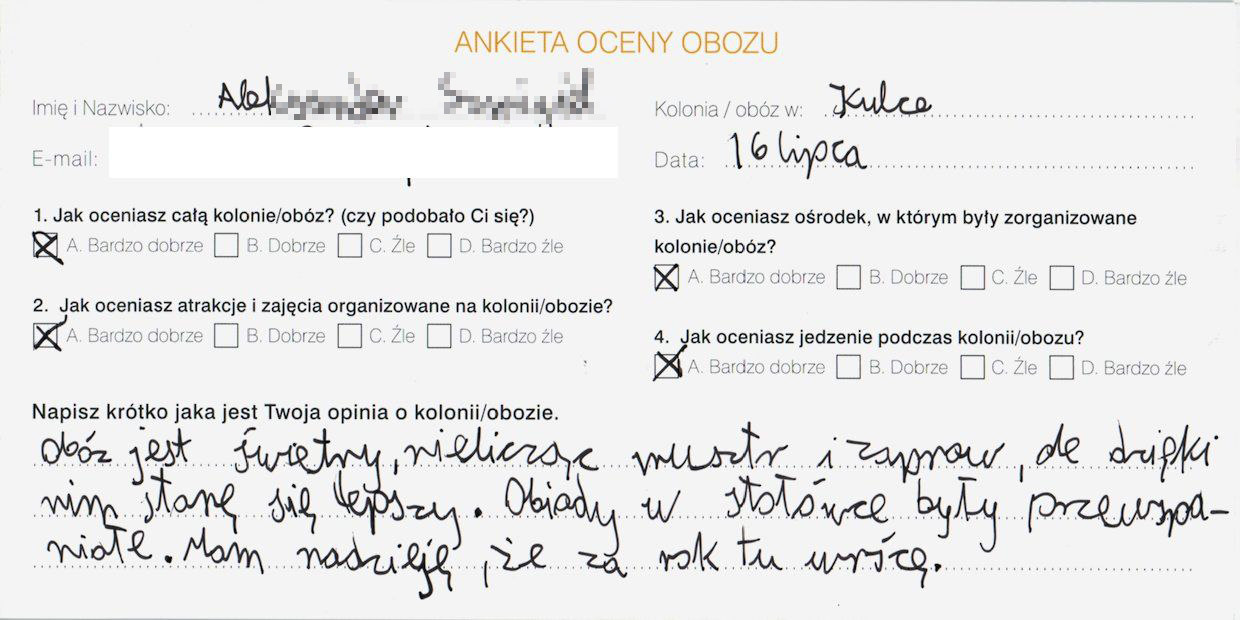 ANKIETA OCENY OBOZU
Imię i Nazwisko:
Kolonia / obóz w: Kulce
E-mail:
Data: 16 lipca
1. Jak oceniasz całą kolonie/obóz? (czy podobało Ci się?)
A. Bardzo dobrze B. Dobrze C. Źle D. Bardzo źle
2. Jak oceniasz atrakcje i zajęcia organizowane na kolonii/obozie?
A. Bardzo dobrze B. Dobrze C. Źle D. Bardzo źle
3. Jak oceniasz ośrodek, w którym były zorganizowane
kolonie/obóz?
A. Bardzo dobrze B. Dobrze C. Źle D. Bardzo źle
4. Jak oceniasz jedzenie podczas kolonii/obozu?
A. Bardzo dobrze B. Dobrze C. Źle D. Bardzo źle
Napisz krótko jaka jest Twoja opinia o kolonii/obozie.
Obóz jest świetny, nieliczsąc musztr i zapraw, ale dzięki
nim stanę się lepszy. Obiady w stołówce były przewspa-
niałe. Mam nadzieję, że za rok tu wrócę.